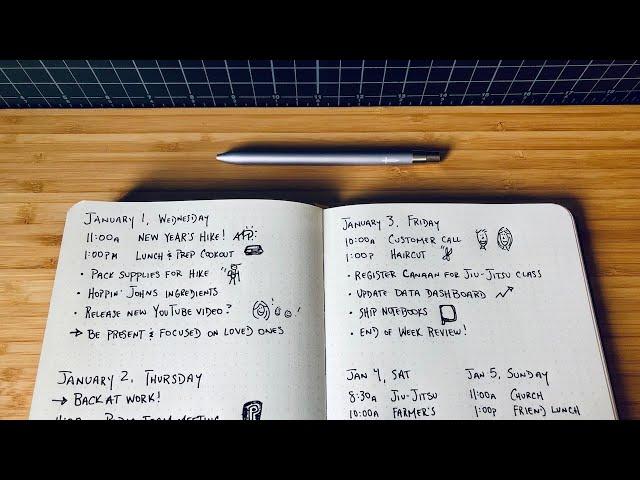 January 1, Wednesday
11:00a New Year's Hike!
1:00pm Lunch & Prep Cookout
• Pack supplies for hike
• Hoppin' Johns ingredients
• Release new YouTube video?
→ Be present & focused on loved ones
January 2, Thursday
→ Back at work!
January 3, Friday
10:00a Customer Call
1:00p Haircut
• Register Canaan for Jiu-Jitsu class
• Update data dashboard
• Ship notebooks
• End of week review!
Jan 4, Sat
8:30a Jiu-Jitsu
10:00a Farmer's
Jan 5, Sunday
11:00a Church
1:00p Friend lunch